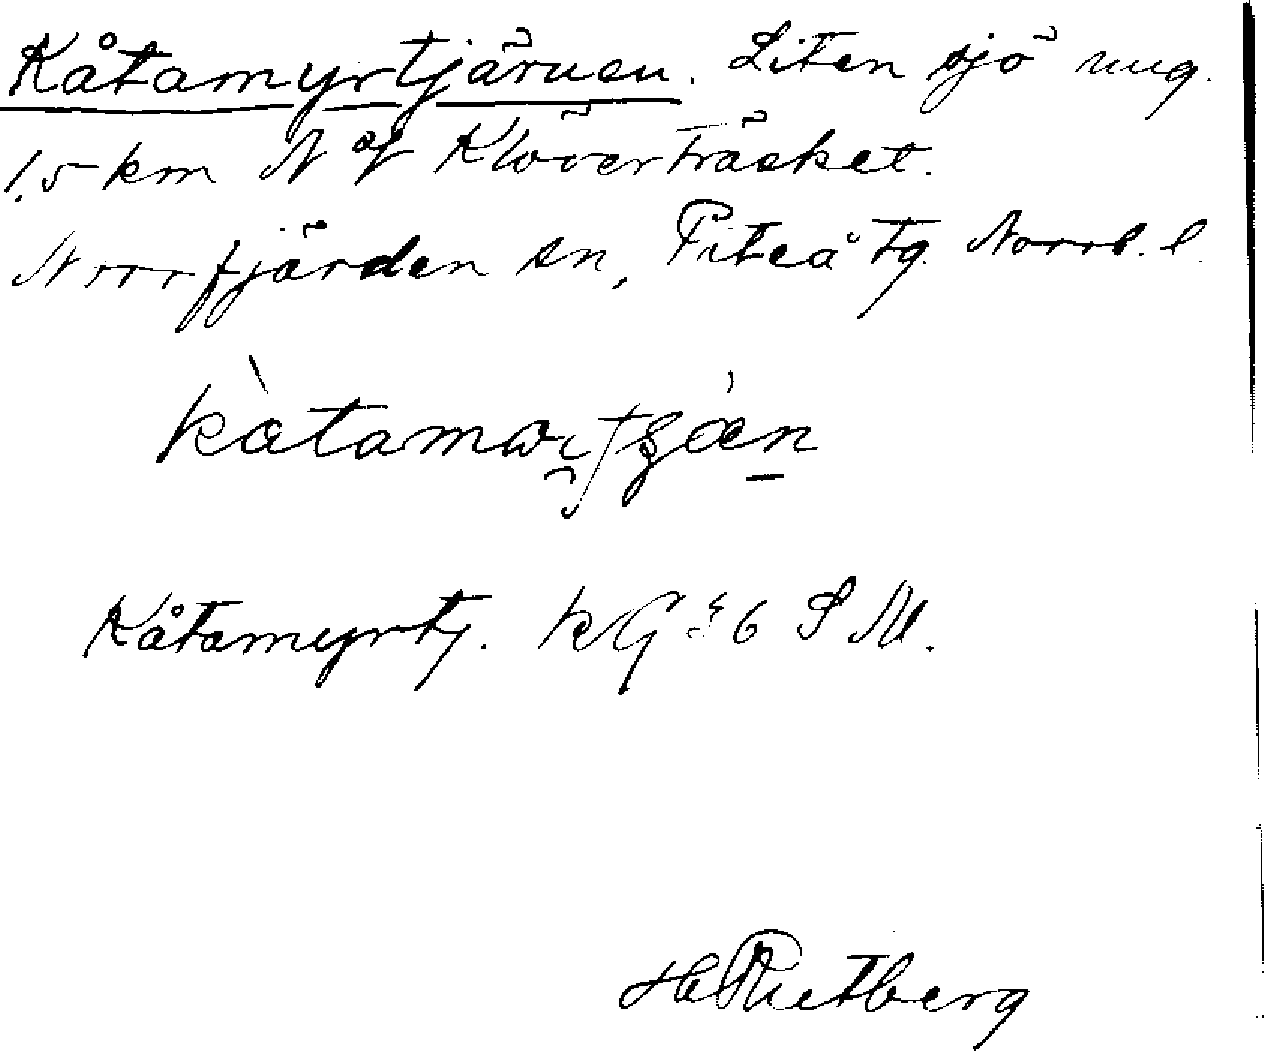 Kåtamyrtjärnen. Liten sjö ung.
1,5 km N of Klöverträsket.
Norrfjärden sn, Piteå tg. Norrb. l.
Kåtamyrtj. KG 36 S M.
H Rietberg